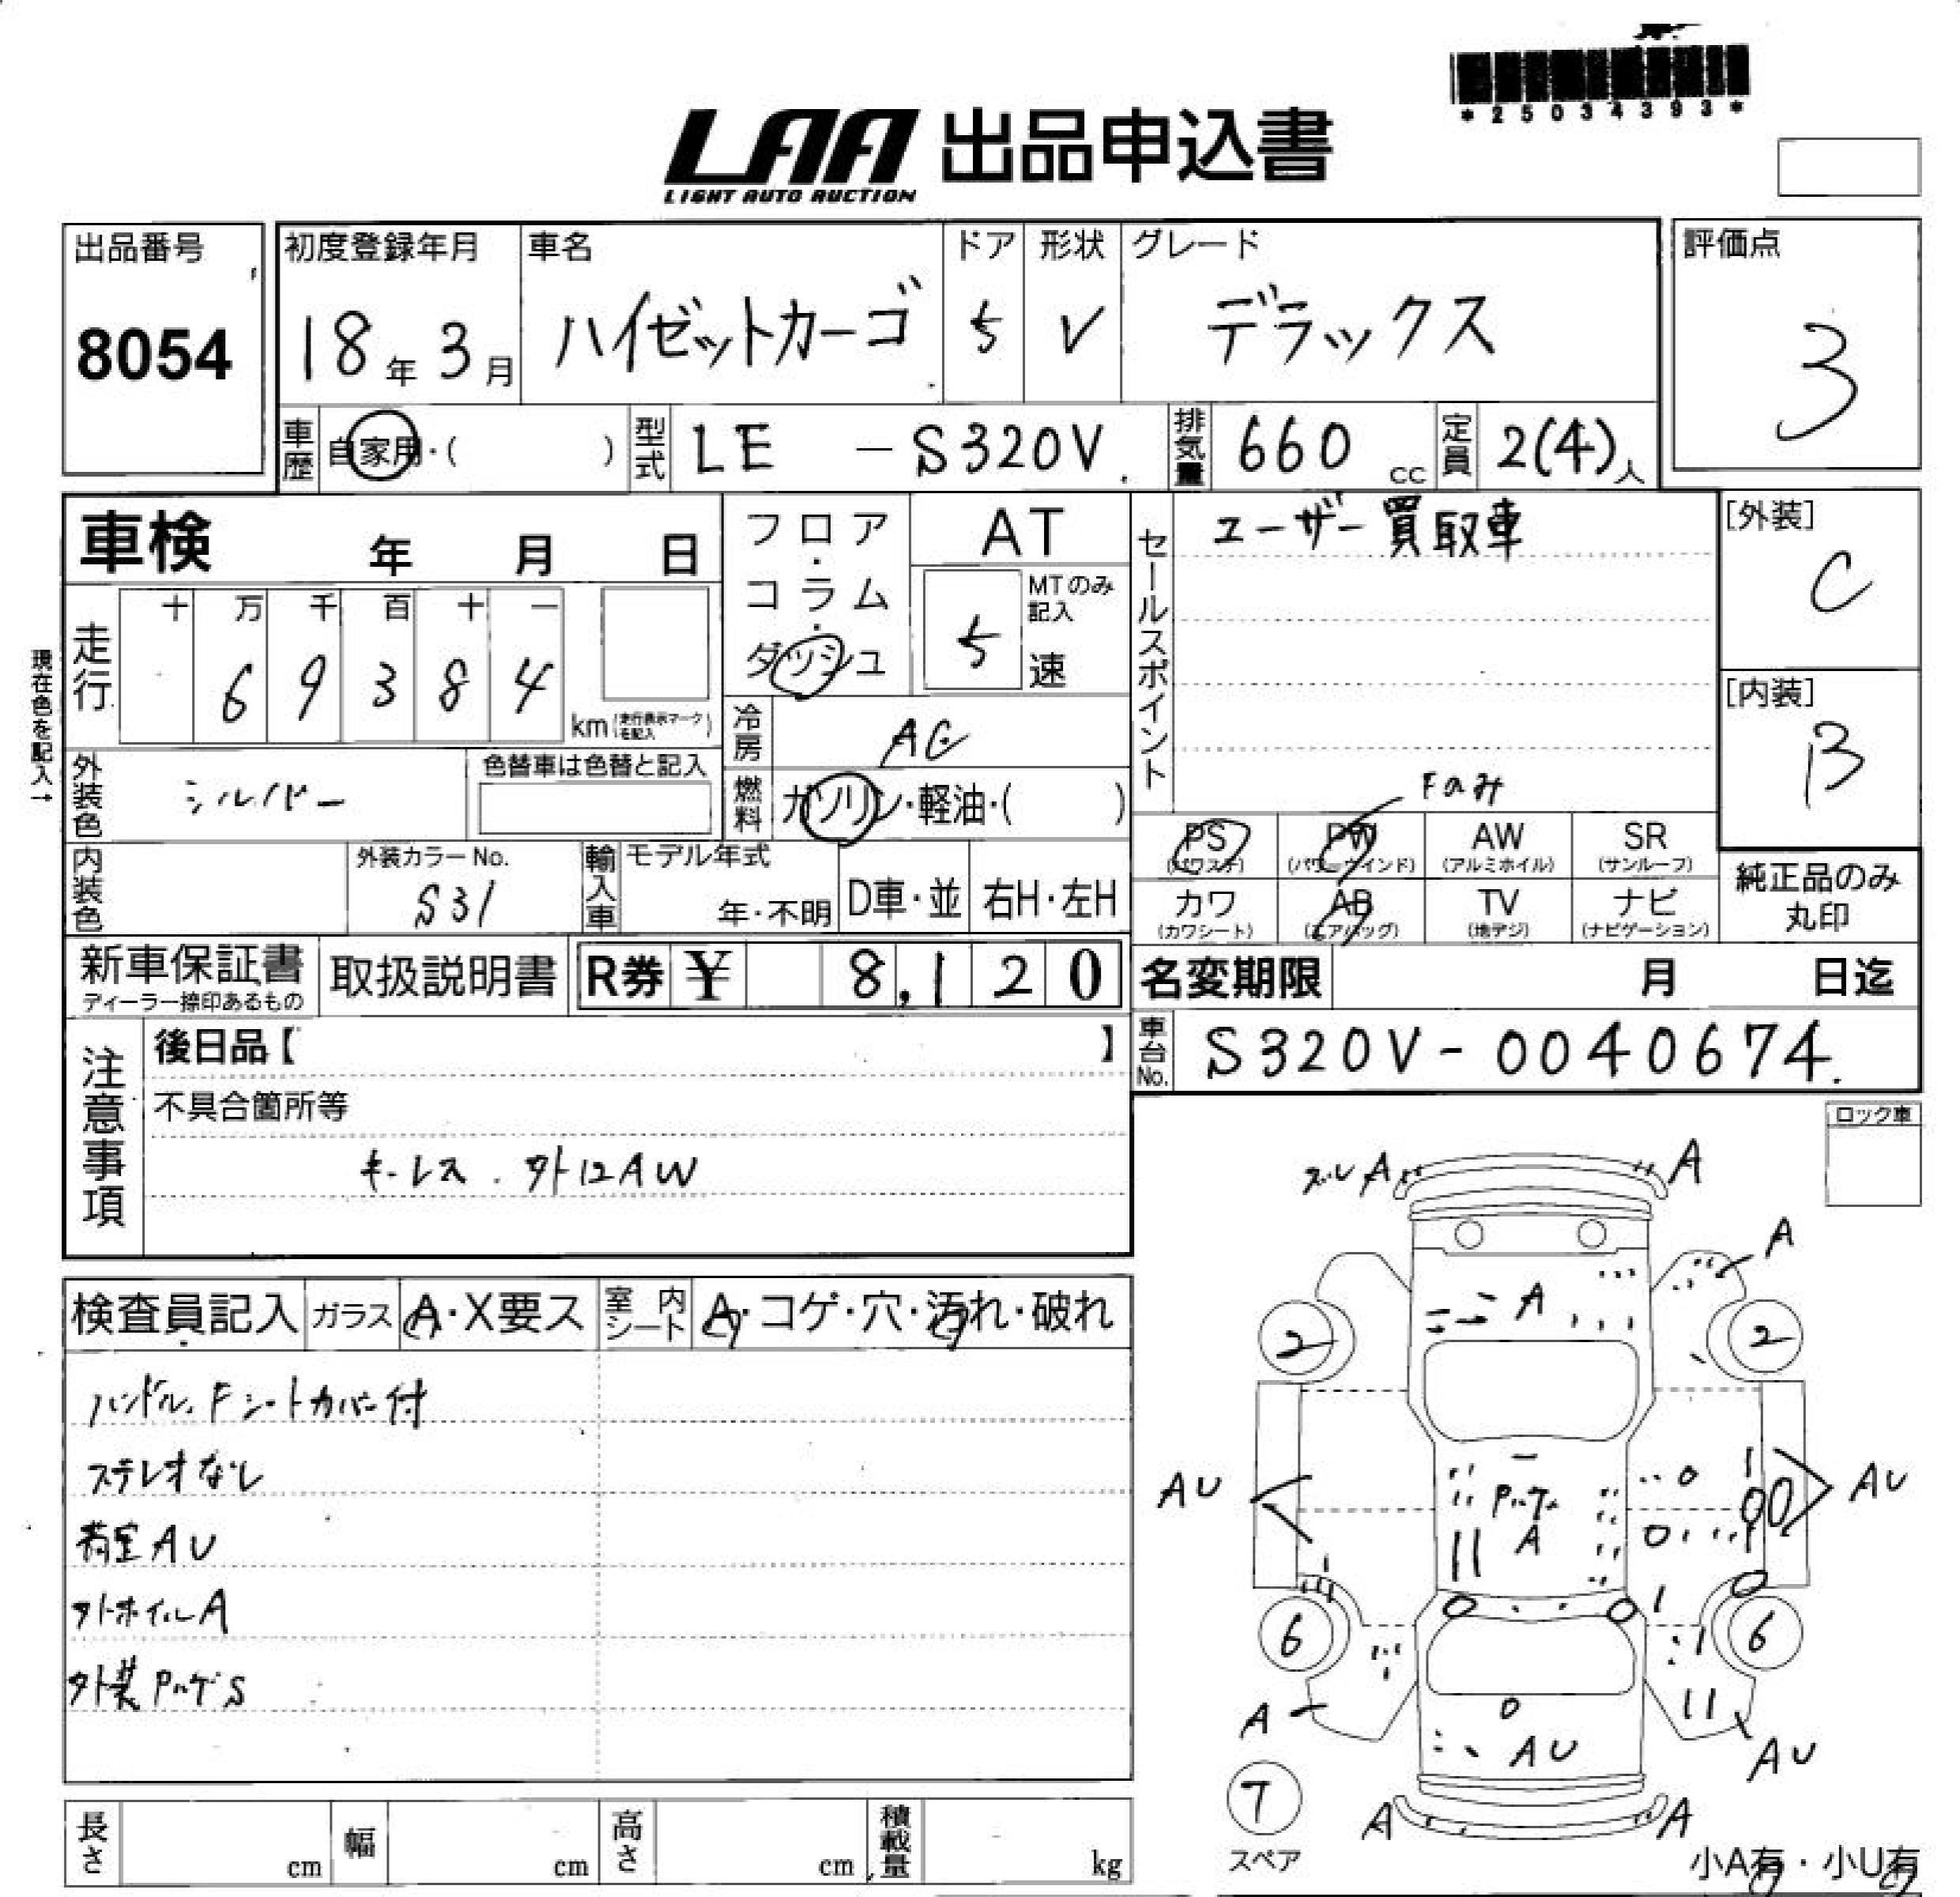 *25034393*
LAA 出品申込書
LIGHT AUTO AUCTION
出品番号
8054
初度登録年月
18年 3月
車名
ハイゼットカーゴ
ドア
5
形状
V
グレード
デラックス
評価点
3
車歴 自家用・( )
型式 LE - S320V
排気量 660 cc
定員 2(4)人
車検 年 月 日
フロア・コラム・ダッシュ
AT
MTのみ記入
5 速
セールスポイント
ユーザー買取車
[外装]
C
現在色を記入→
走行
十 万 千 百 十 一
6 9 3 8 4
km (走行表示マークを記入)
[内装]
B
冷房 AC
燃料 ガソリン・軽油・( )
外装色 シルバー
色替車は色替と記入
Fのみ
PS (パワステ)
PW (パワーウインド)
AW (アルミホイル)
SR (サンルーフ)
カワ (カワシート)
AB (エアバッグ)
TV (地デジ)
ナビ (ナビゲーション)
純正品のみ丸印
内装色
外装カラーNo.
S31
輸入車
モデル年式
年・不明
D車・並
右H・左H
新車保証書
ディーラー捺印あるもの
取扱説明書
R券 ¥ 8,120
名変期限 月 日迄
車台No. S320V-0040674
注意事項
後日品【 】
不具合箇所等
キーレス. 外12AW
ロック車
検査員記入
ガラス A・X要ス
室内シート A・コゲ・穴・汚れ・破れ
ハンドル、Fシートカバー付
ステレオなし
荷室AU
外ホイルA
外装PハゲS
A
A
A
A
2
2
AU
Pハゲ
A
AU
6
6
A
AU
AU
7
スペア
A
A
小A有・小U有
長さ cm
幅 cm
高さ cm
積載量 kg